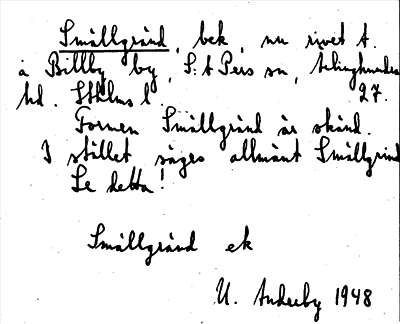 Smällgränd, bek, nu rivet t.
å Billby by, S:t Pers sn,
hd. Sthlms l. 27.
Formen Smällgränd är okänd.
I stället säges allmänt Smällgrind
Se detta!
Smällgränd ek
U. 1948